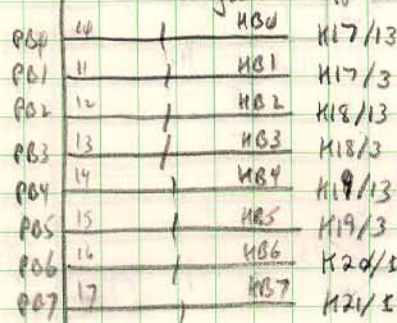 PB0 10 HB0 H17/13
PB1 11 HB1 H17/3
PB2 12 HB2 H18/13
PB3 13 HB3 H18/3
PB4 14 HB4 H19/13
PB5 15 HB5 H19/3
PB6 16 HB6 H20/1
PB7 17 HB7 H21/1